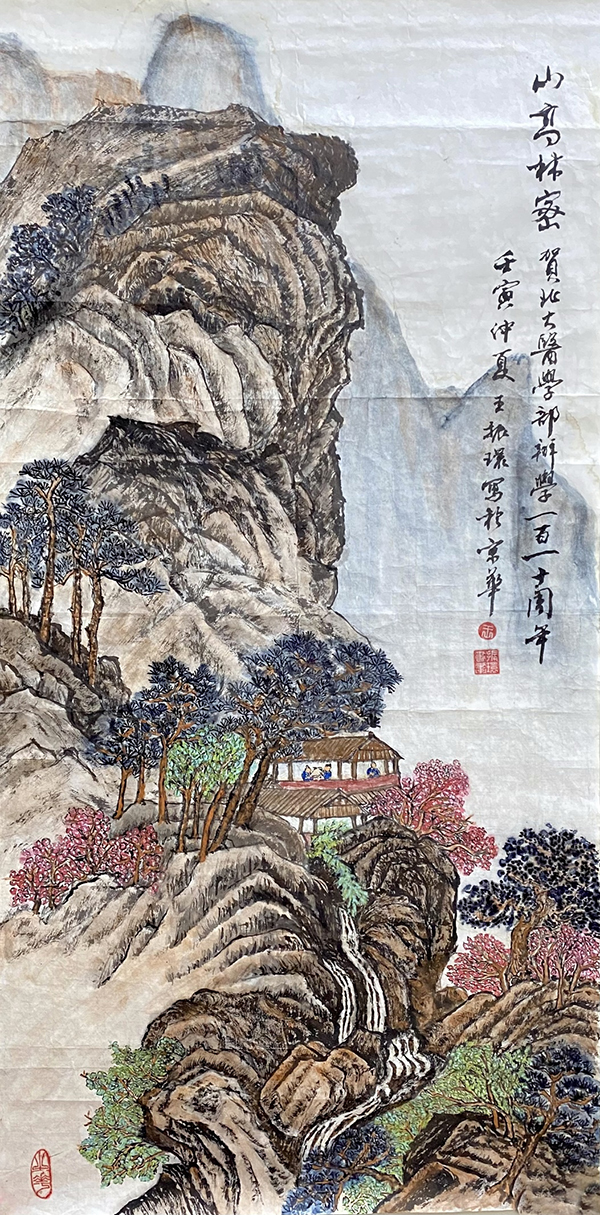 山高林密
賀北大醫學部辦學一百一十周年
壬寅仲夏王振環写於京華